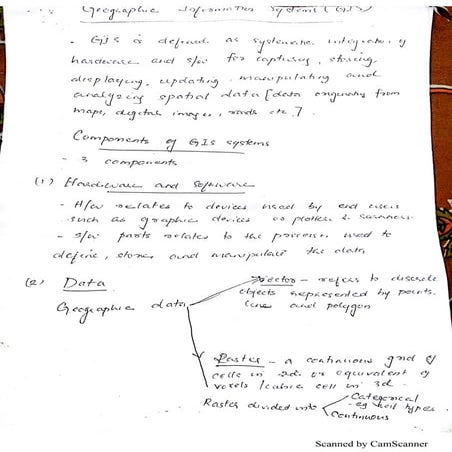 Geographic Information Systems (GIS)
- GIS is defined as systematic integration of
hardware and s/w for capturing, storing,
displaying, updating, manipulating and
analyzing spatial data [data originating from
maps, digital images, roads etc.]
Components of GIS systems
- 3 components
(1) Hardware and Software
- H/w relates to devices used by end users
such as graphic devices or plotters & scanners
- s/w parts relates to the processes used to
define, store and manipulate the data
(2) Data
Vector - refers to discrete
objects represented by points,
line and polygon
Geographic data
Raster - a continuous grid of
cells in 2d or equivalent of
voxels / cubic cell in 3d.
Categorical
eg soil types
Raster divided into
Continuous
Scanned by CamScanner